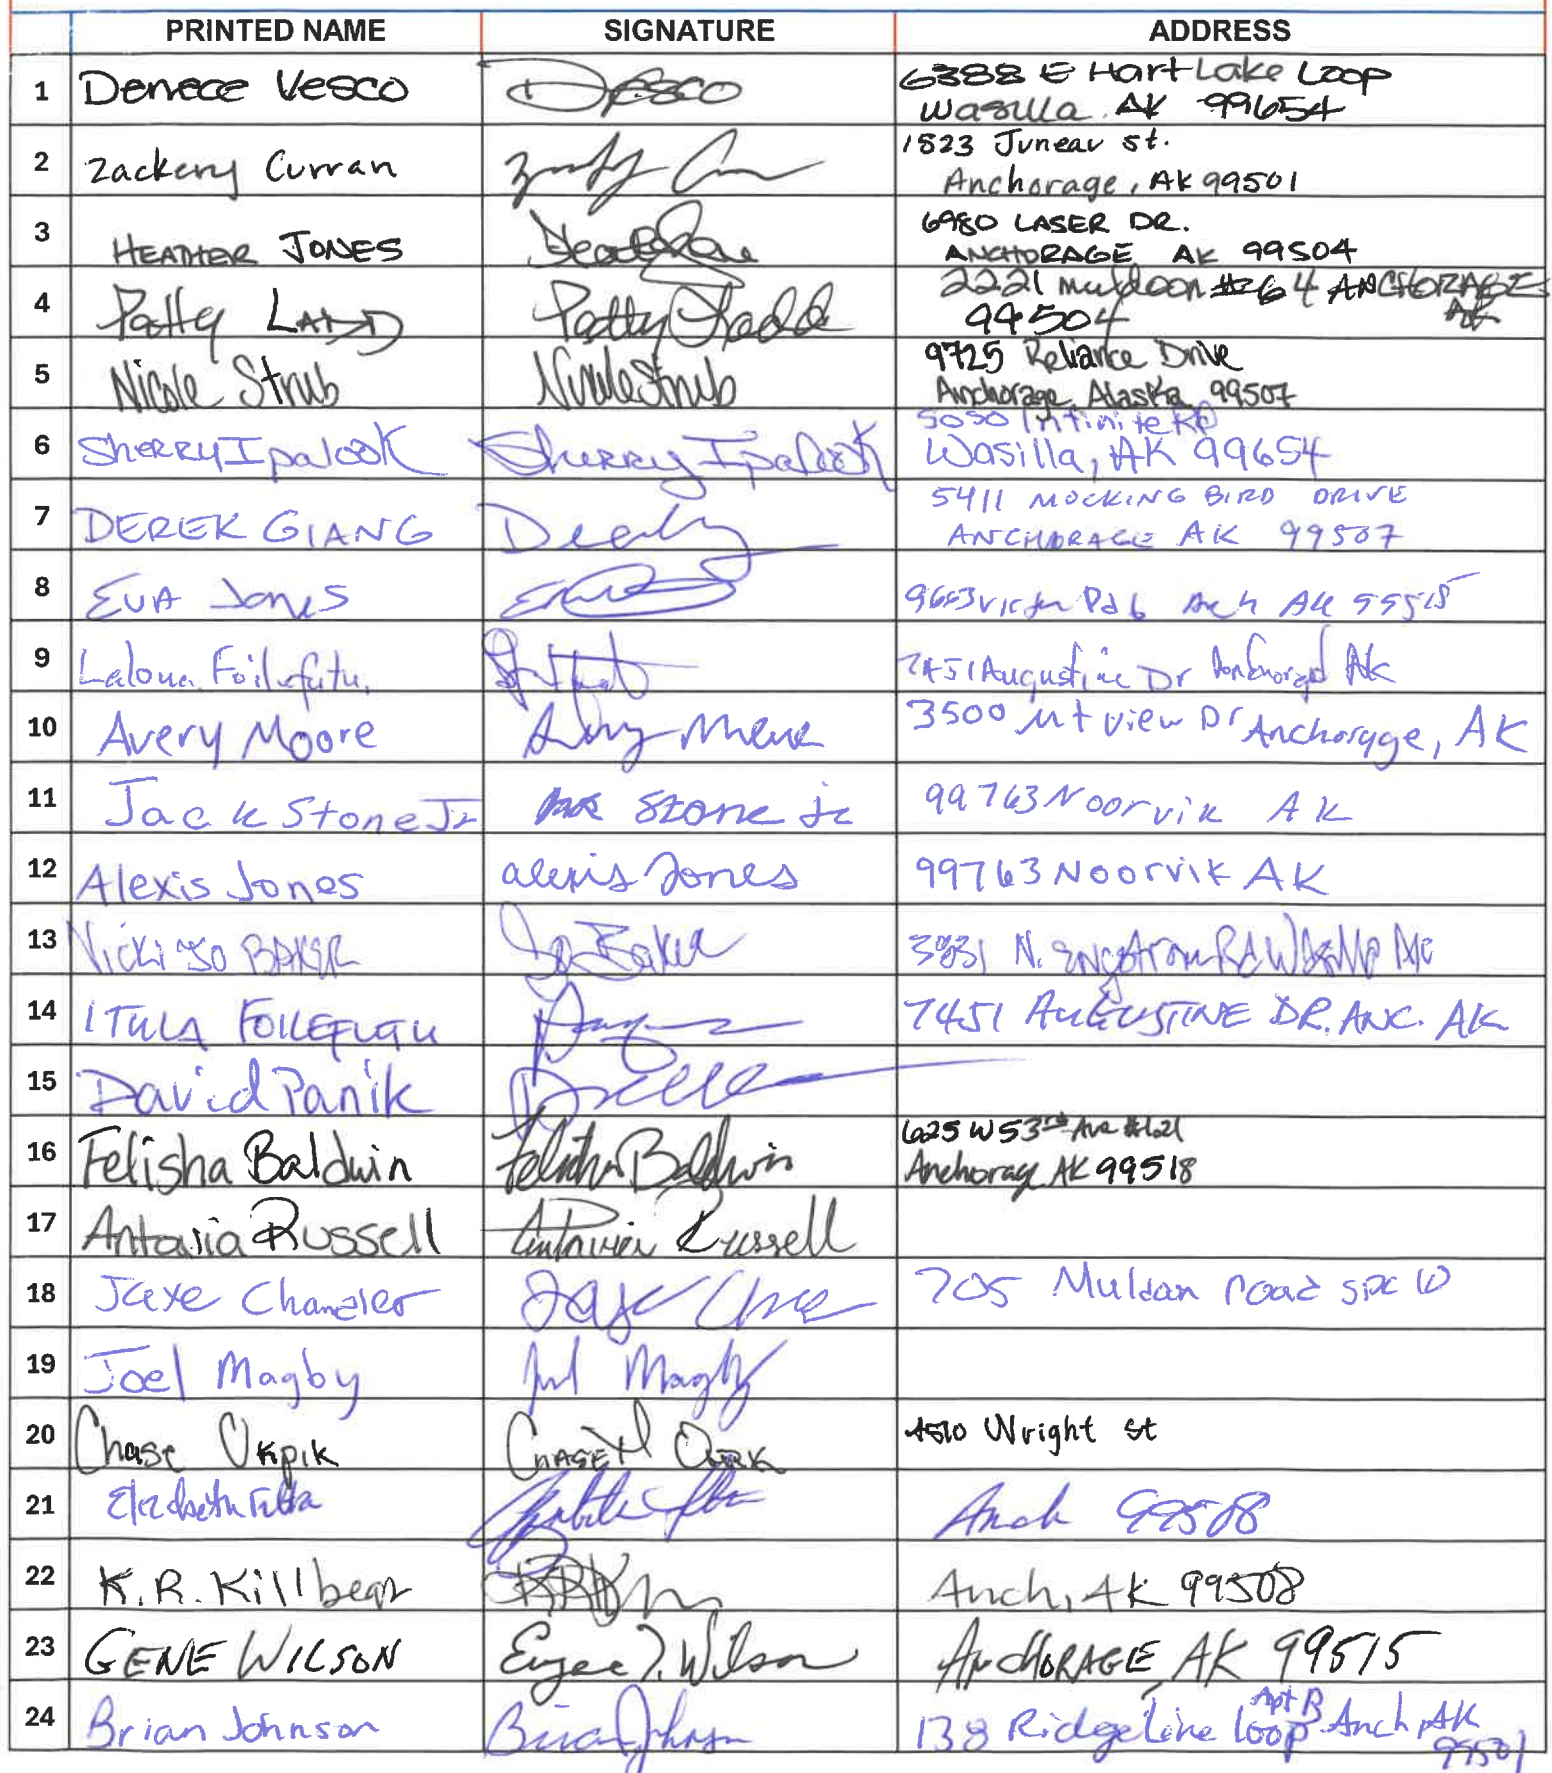 PRINTED NAME SIGNATURE ADDRESS
1 Denece Vesco DVesco 6388 E Hart Lake Loop
Wasilla AK 99654
2 Zackery Curran 1523 Juneau St.
Anchorage, AK 99501
3 HEATHER JONES 6980 LASER DR.
ANCHORAGE AK 99504
4 Patty LADD Patty Ladd 2221 muldoon #64 ANCHORAGE
99504 AK
5 Nicole Strub Nicole Strub 9725 Reliance Drive
Anchorage, Alaska 99507
6 Sherry Ipalook Sherry Ipalook 5050 Infinite Rd
Wasilla, AK 99654
7 DEREK GIANG 5411 MOCKING BIRD DRIVE
ANCHORAGE AK 99507
8 EVA Jones Anch AK 99515
9 7451 Augustine Dr Anchorage AK
10 Avery Moore Avery Moore 3500 Mt view Dr Anchorage, AK
11 Jack Stone Jr Stone Jr 99763 Noorvik AK
12 Alexis Jones alexis Jones 99763 Noorvik AK
13 Vicki Jo BAKER Jo Baker N. Rd Wasilla AK
14 ITULA FOILEFUTU 7451 AUGUSTINE DR. ANC. AK
15 David Panik
16 Felisha Baldwin Felisha Baldwin 625 W 53rd Ave #621
Anchorage AK 99518
17 Antavia Russell Russell
18 Jaxe Chandler 705 Muldoon road spc
19 Joel Magby Joel Magby
20 Chase Ukpik 4510 Wright St
21 Anch 99508
22 K.R. Killbear Anch, AK 99508
23 GENE WILSON Wilson ANCHORAGE, AK 99515
24 Brian Johnson Brian Johnson 138 Ridgeline loop Apt B Anch AK
99501